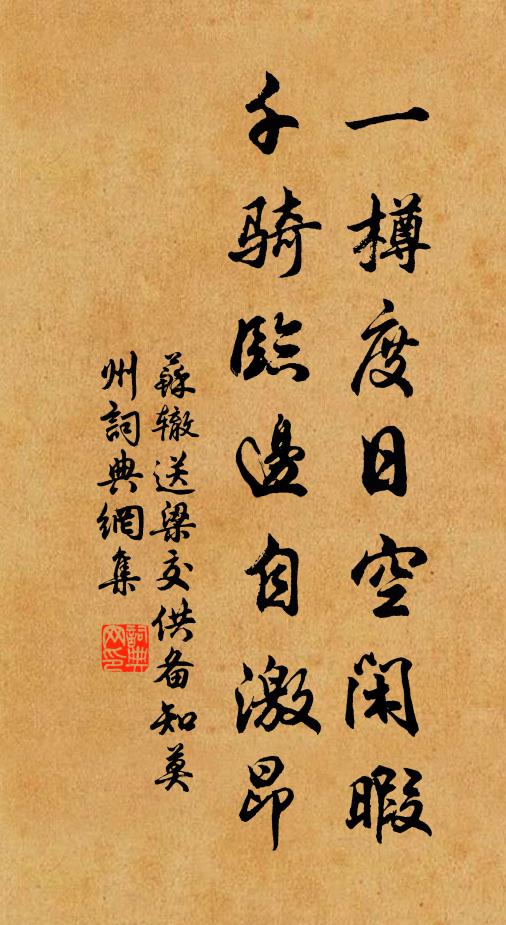 一樽度日空閑暇
千騎臨邊自激昂
蘇辙送梁交供备知莫
州詞典網集
詞典
网印